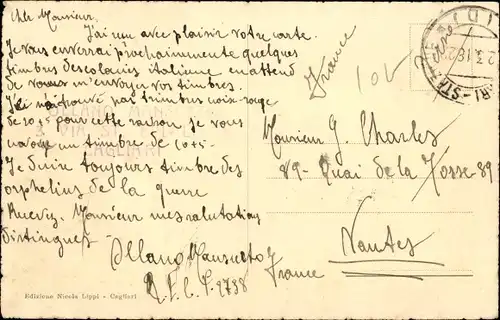 Cher Monsieur,
J'ai reçu avec plaisir votre carte.
Je vous enverrai prochainement quelques
timbres des colonies italienne
de m'envoyer vos timbres.
Je n'ai trouvé pas timbres croix rouge
de 10+5 pour cette raison je vous
envoye un timbre de 10+5.
Je toujours timbre des
orphelins de la guerre
Recevez Monsieur mes salutations
distingués
CAGLIARI
Mansueto
2738
France
10 c
Monsieur G. Charles
89 - Quai de la Fosse - 89
Nantes
France
Edizione Nicola Lippi - Cagliari